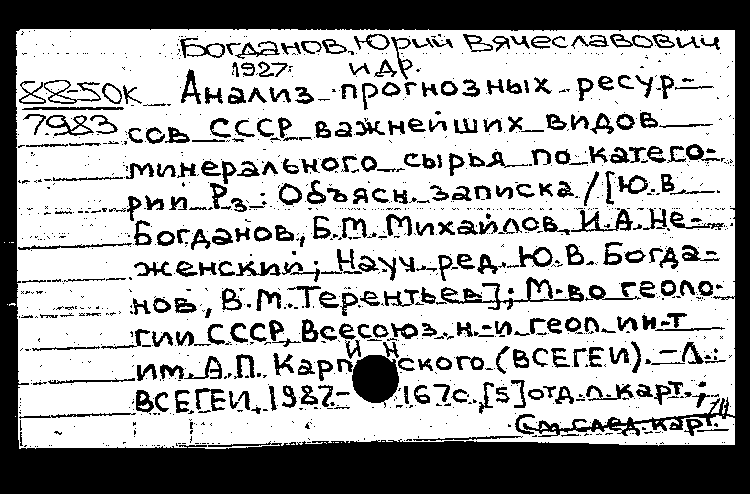 Богданов, Юрий Вячеславович
1927- и др.
88-50К Анализ прогнозных ресур-
7983 сов СССР важнейших видов
минерального сырья по катего-
рии Р₃ : Объясн. записка / [Ю.В.
Богданов, Б.М. Михайлов, И.А. Не-
женский; Науч. ред. Ю.В. Богда-
нов, В.М. Терентьев]; М-во геоло-
гии СССР, Всесоюз. н.-и. геол. ин-т
им. А.П. Карпинского (ВСЕГЕИ). - Л.:
ВСЕГЕИ, 1987- 167с., [5] отд. л. карт.;
См. след. карт.